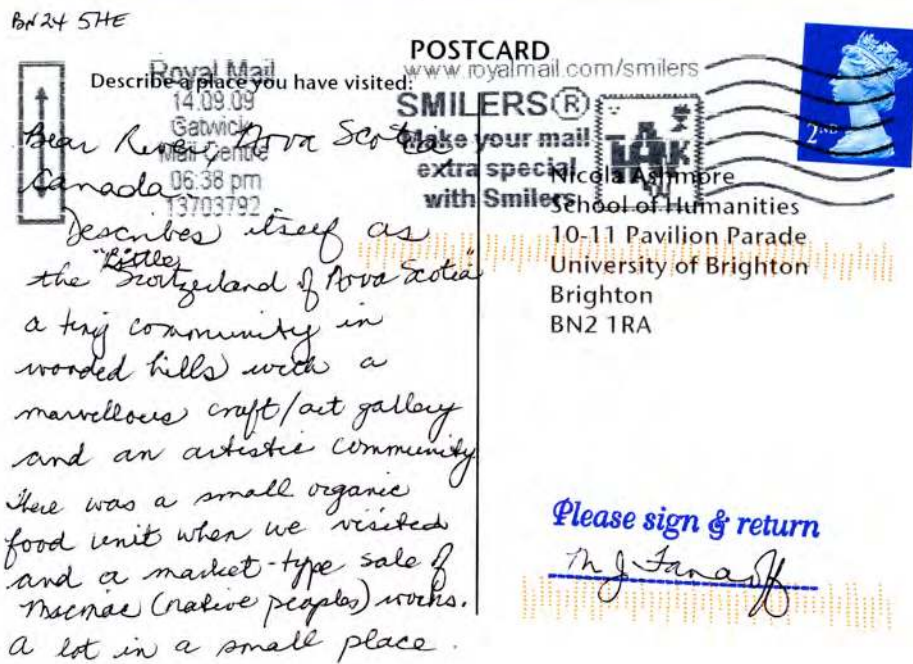 BN24 5HE
POSTCARD
Describe a place you have visited:
Royal Mail
14.09.09
Gatwick
Mail Centre
06:38 pm
13703792
www.royalmail.com/smilers
SMILERS(R)
Make your mail
extra special
with Smilers
2ND
Bear River, Nova Scotia
Canada
Describes itself as
the "Little Switzerland of Nova Scotia"
a tiny community in
wooded hills with a
marvellous craft/art gallery
and an artistic community.
There was a small organic
food unit when we visited
and a market-type sale of
Micmac (native peoples) works.
A lot in a small place.
Nicola Ashmore
School of Humanities
10-11 Pavilion Parade
University of Brighton
Brighton
BN2 1RA
Please sign & return
M J Fanaroff